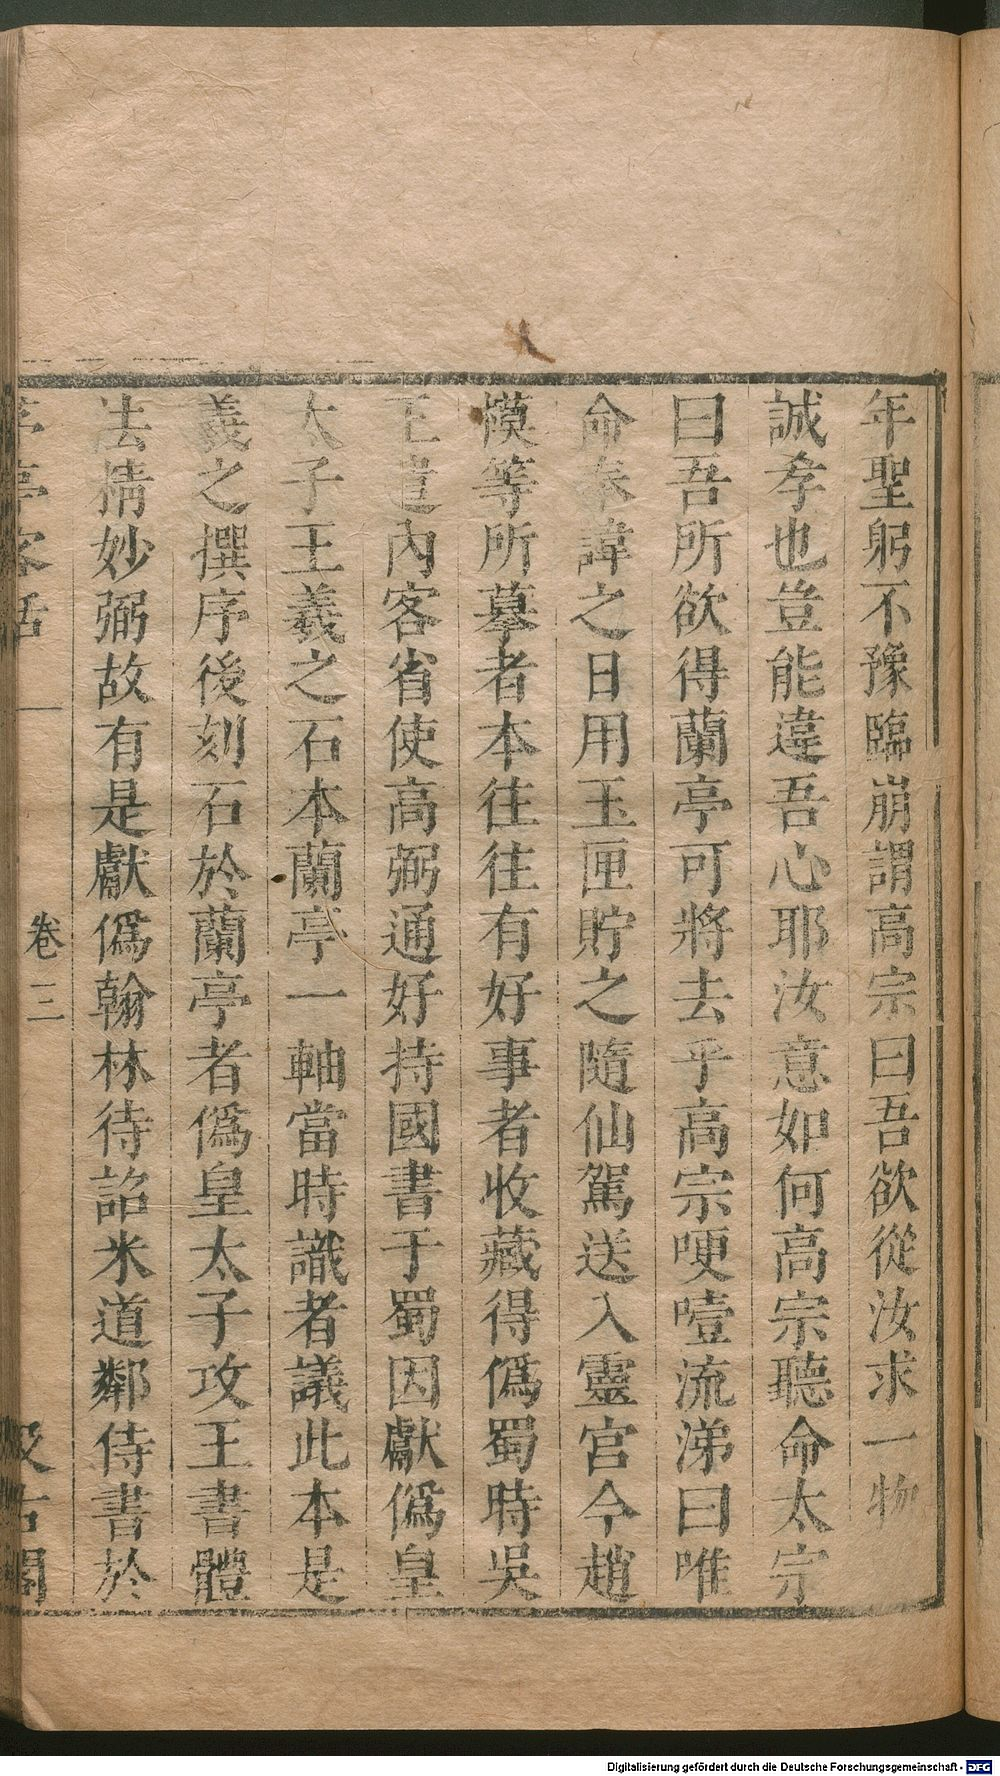 年聖躬不豫臨崩謂高宗曰吾欲從汝求一物
誠孝也豈能違吾心耶汝意如何高宗聽命太宗
曰吾所欲得蘭亭可將去乎高宗哽噎流涕曰唯
命奉諱之日用玉匣貯之隨仙駕送入靈宮今趙
模等所摹者本往往有好事者收藏得僞蜀時吳
王遣內客省使高弼通好持國書于蜀因獻僞皇
太子王羲之石本蘭亭一軸當時識者議此本是
羲之撰序後刻石於蘭亭者僞皇太子攻王書體
法精妙弼故有是獻僞翰林待詔米道鄰侍書於
亭客話 卷三 汲古閣
Digitalisierung gefördert durch die Deutsche Forschungsgemeinschaft - DFG